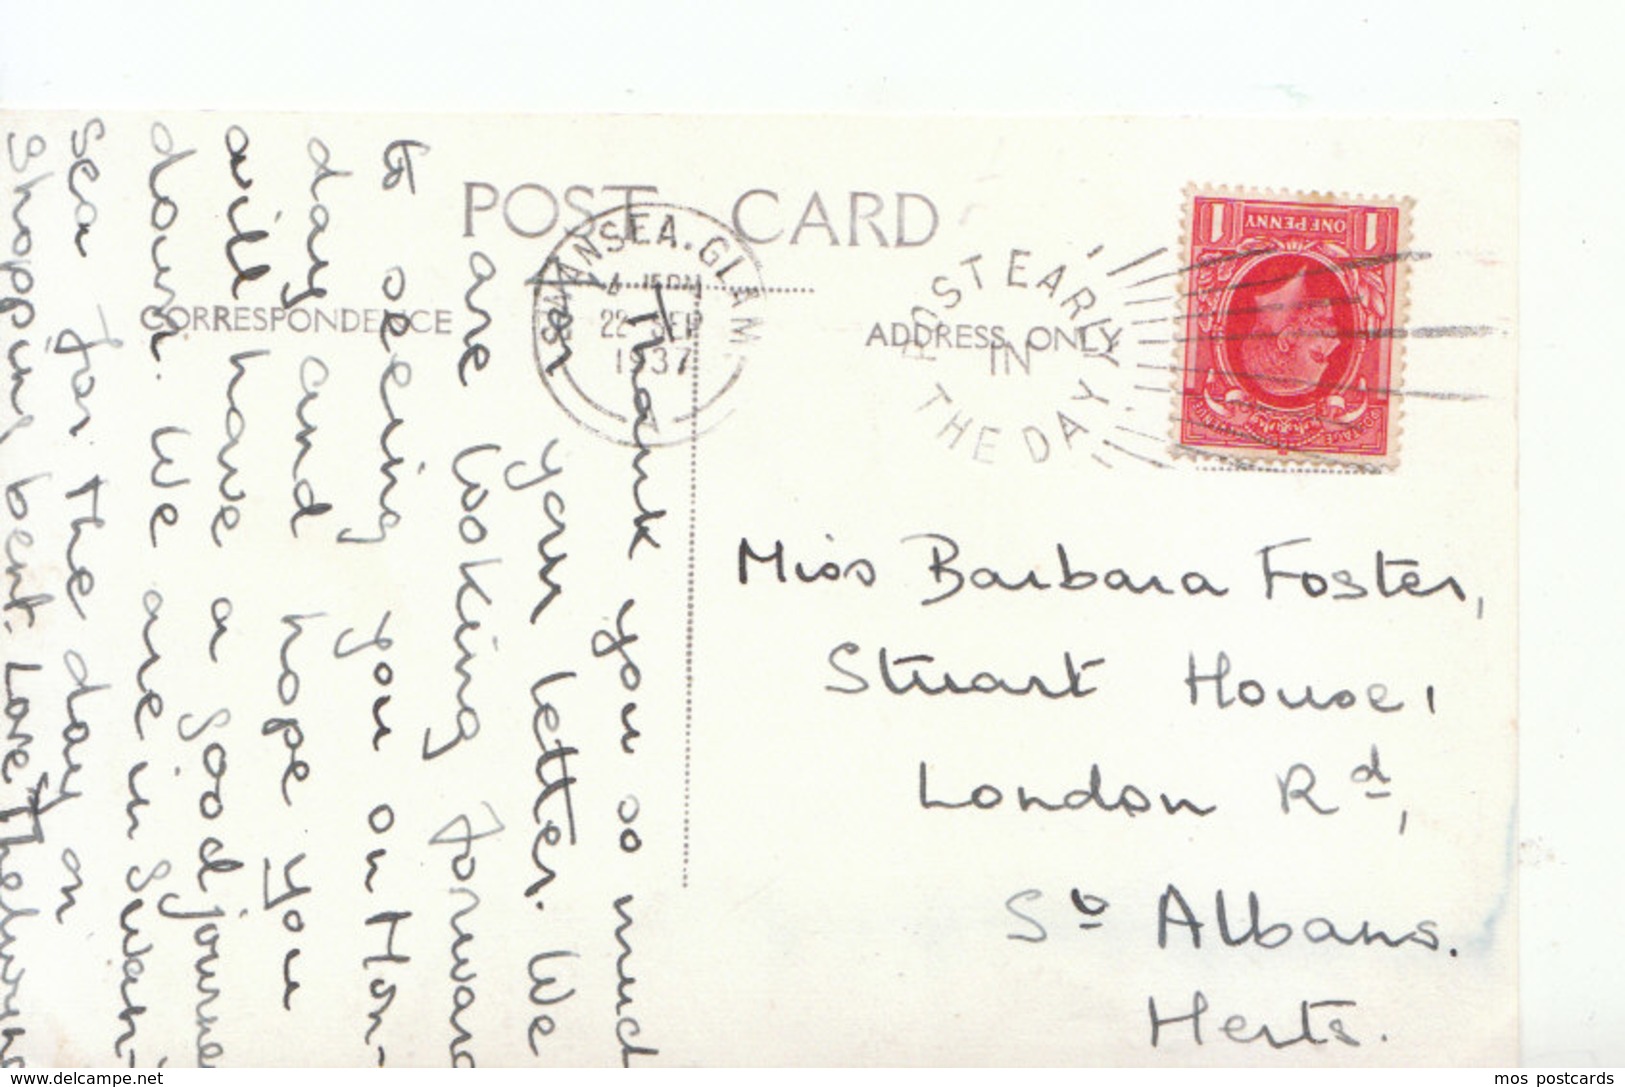 POST CARD
CORRESPONDENCE
ADDRESS ONLY
SWANSEA. GLAM
4 15PM
22 SEP
1937
POST EARLY
IN
THE DAY
1 ONE PENNY 1
POSTAGE REVENUE
Thank you so much
for your letter. We
are looking forward
to seeing you on Mon-
day and hope you
will have a good journe
down. We are in Swan-
sea for the day on
shopping bent. Love
Miss Barbara Foster,
Stuart House,
London Rd,
St Albans.
Herts.
www.delcampe.net
mos postcards